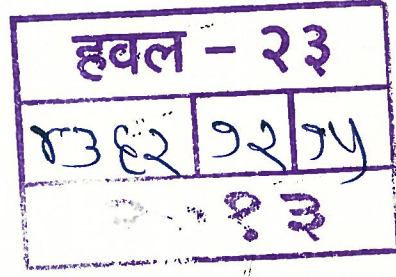 हवल - २३
४३६२ १२ १५
१३